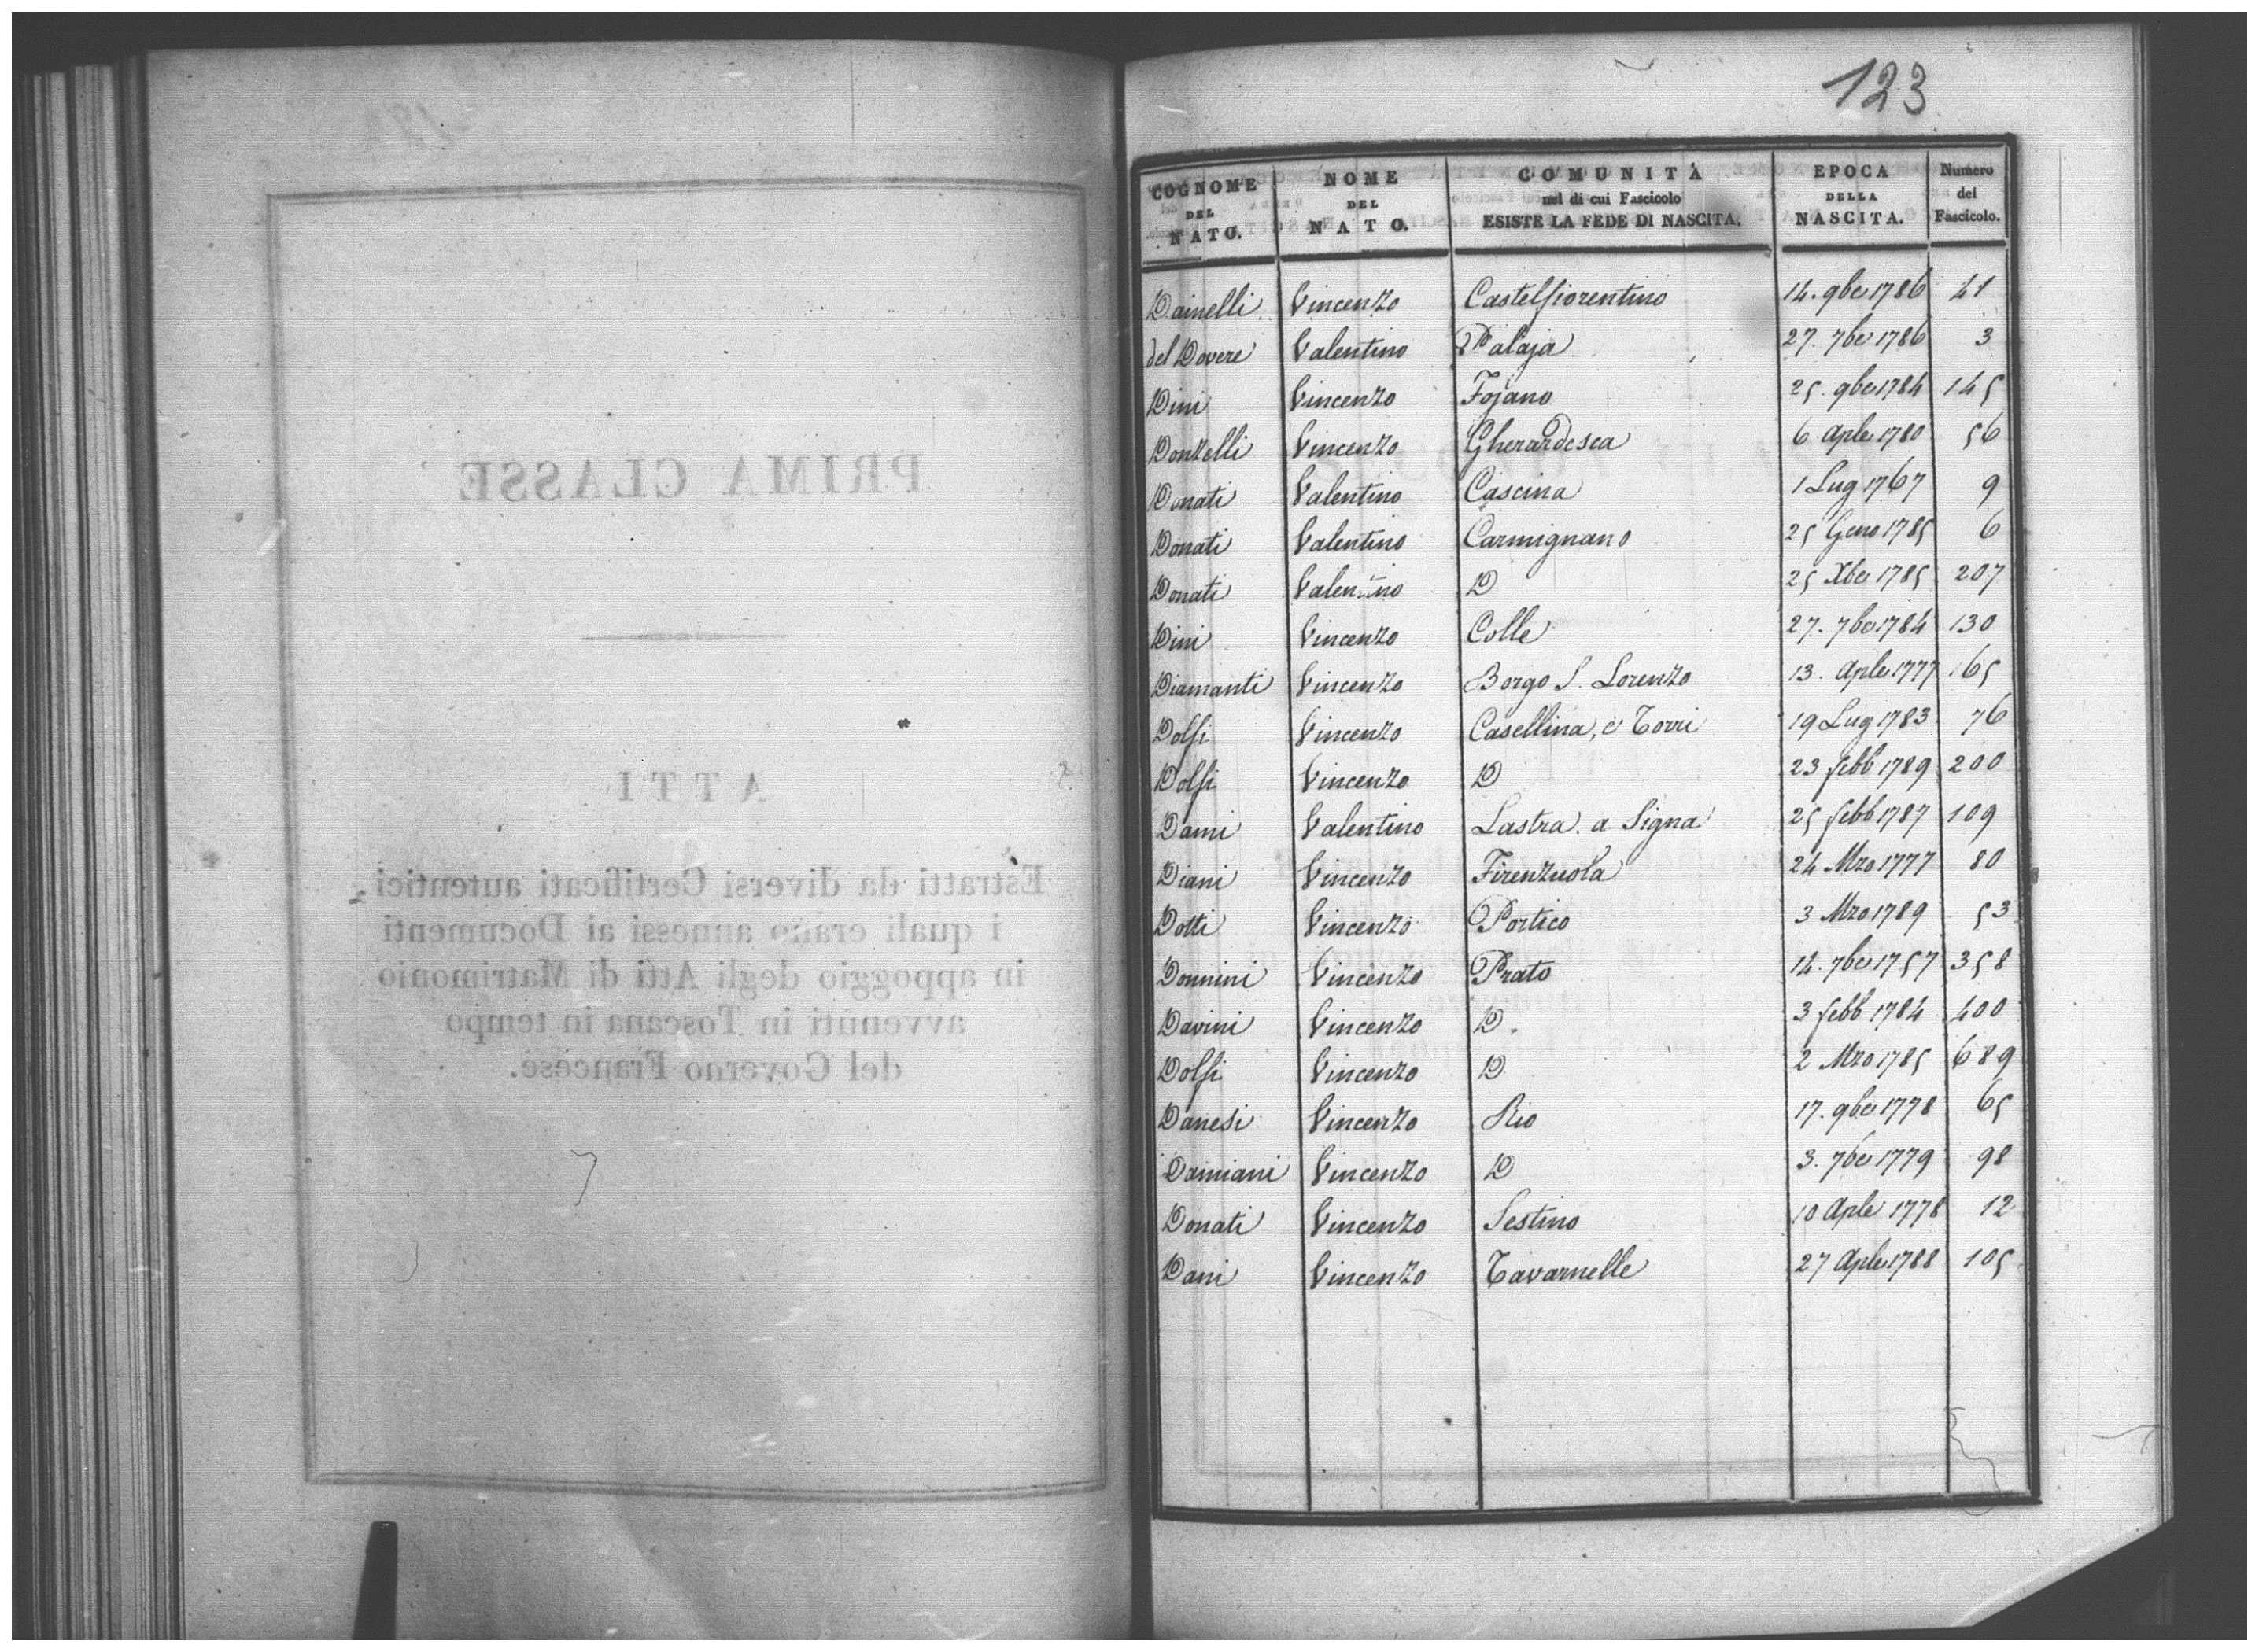 PRIMA CLASSE
ATTI
Estratti da diversi Certificati autentici
i quali erano annessi ai Documenti
in appoggio degli Atti di Matrimonio
avvenuti in Toscana in tempo
del Governo Francese.
123
COGNOME DEL NATO. NOME DEL NATO. COMUNITÀ nel di cui Fascicolo ESISTE LA FEDE DI NASCITA. EPOCA DELLA NASCITA. Numero del Fascicolo.
Dainelli Vincenzo Castelfiorentino 14. 9be 1786 41
del Dovere Valentino Palaja 27. 7be 1786 3
Dini Vincenzo Fojano 25. 9be 1784 145
Donzelli Vincenzo Gherardesca 6 Aple 1780 56
Donati Valentino Cascina 1 Lug 1767 9
Donati Valentino Carmignano 25 Geno 1785 6
Donati Valentino D 25 Xbe 1785 207
Dini Vincenzo Colle 27. 7be 1784 130
Diamanti Vincenzo Borgo S. Lorenzo 13. Aple 1777 165
Dolfi Vincenzo Casellina, e Torri 19 Lug 1783 76
Dolfi Vincenzo D 23 febb 1789 200
Dami Valentino Lastra a Signa 25 febb 1787 109
Diani Vincenzo Firenzuola 24 Mzo 1777 80
Dotti Vincenzo Portico 3 Mzo 1789 53
Donnini Vincenzo Prato 14. 7be 1757 358
Davini Vincenzo D. 3 febb 1784 400
Dolfi Vincenzo D 2 Mzo 1785 689
Danesi Vincenzo Rio 17. 9be 1778 65
Damiani Vincenzo D 3. 7be 1779 98
Donati Vincenzo Sestino 10 Aple 1778 12
Dani Vincenzo Tavarnelle 27 Aple 1788 105